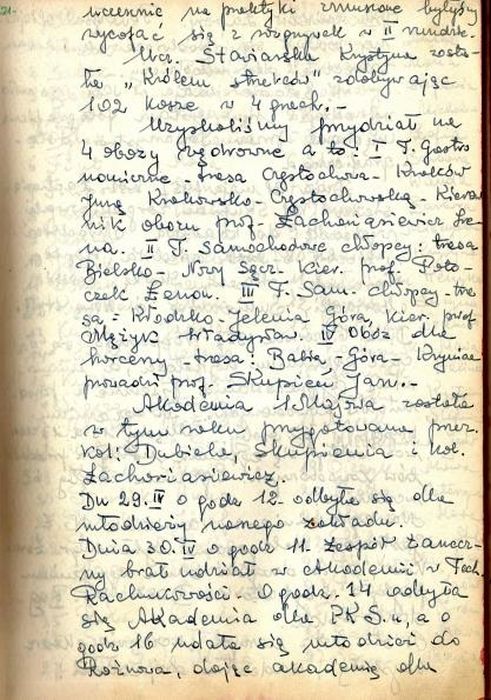 51.
wcześnie na praktyki zmuszone byłyśmy
wycofać się z rozgrywek w II rundzie.
Ucz. Stawiarska Krystyna zosta-
ła "Królem strzelców" zdobywając
102 kosze w 4 grach. -
Uzyskaliśmy przydział na
4 obozy wędrowne a to: I T. Gastro
nomiczne - trasa Częstochowa - Kraków
Jurą Krakowsko - Częstochowską - Kierow
nik obozu prof. Zachariasiewicz Ire-
na. II T. Samochodowe chłopcy: trasa
Bielsko - Nowy Sącz - Kier. prof. Poto-
czek Zenon. III T. Sam. chłopcy - tra
sa: Kłodzko - Jelenia Góra, Kier. prof
Mężyk Władysław. IV Obóz dla
harcerzy - trasa: Babia - Góra - Krynica
prowadzi prof. Skupień Jan. -
Akademia 1 Majowa została
w tym roku przygotowana przez
kol: Dubiela, Skupienia i kol.
Zachariasiewicz.
Dn 29.IV o godz 12 - odbyła się dla
młodzieży naszego zakładu.
Dnia 30.IV o godz 11. Zespół Tanecz-
ny brał udział w Akademii w Tech.
Rachunkowości. O godz. 14 odbyła
się Akademia dla PKS.u, a o
godz 16 udała się młodzież do
Rożnowa, dając akademię dla